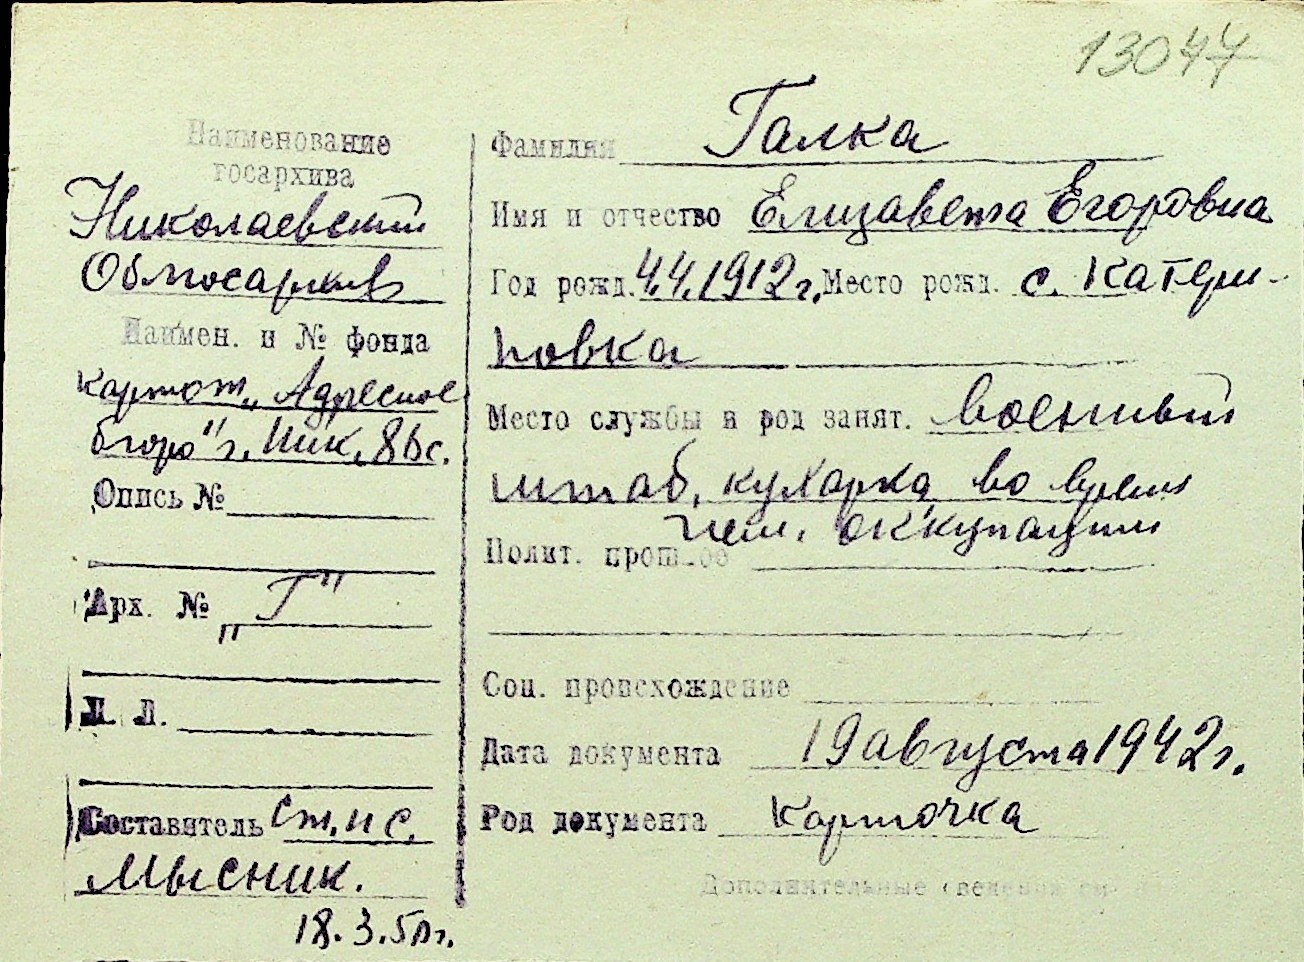 13077
Наименование
госархива
Николаевский
Облгосархив
Наимен. и № фонда
картот. „Адресное
бюро" г. Ник.
Опись №
Арх. № „Г"
Л. Л.
Составитель ст. н с.
Мысник.
18.3.50г.
Фамилия Галка
Имя и отчество Елизавета Егоровна
Год рожд. 4.4.1912г. Место рожд. с. Катери-
новка
Место службы и род занят. Военный
штаб, кухарка во время
нем. оккупации
Полит. прошлое
Соц. происхождение
Дата документа 19 августа 1942г.
Род документа Карточка
Дополнительные сведения см.